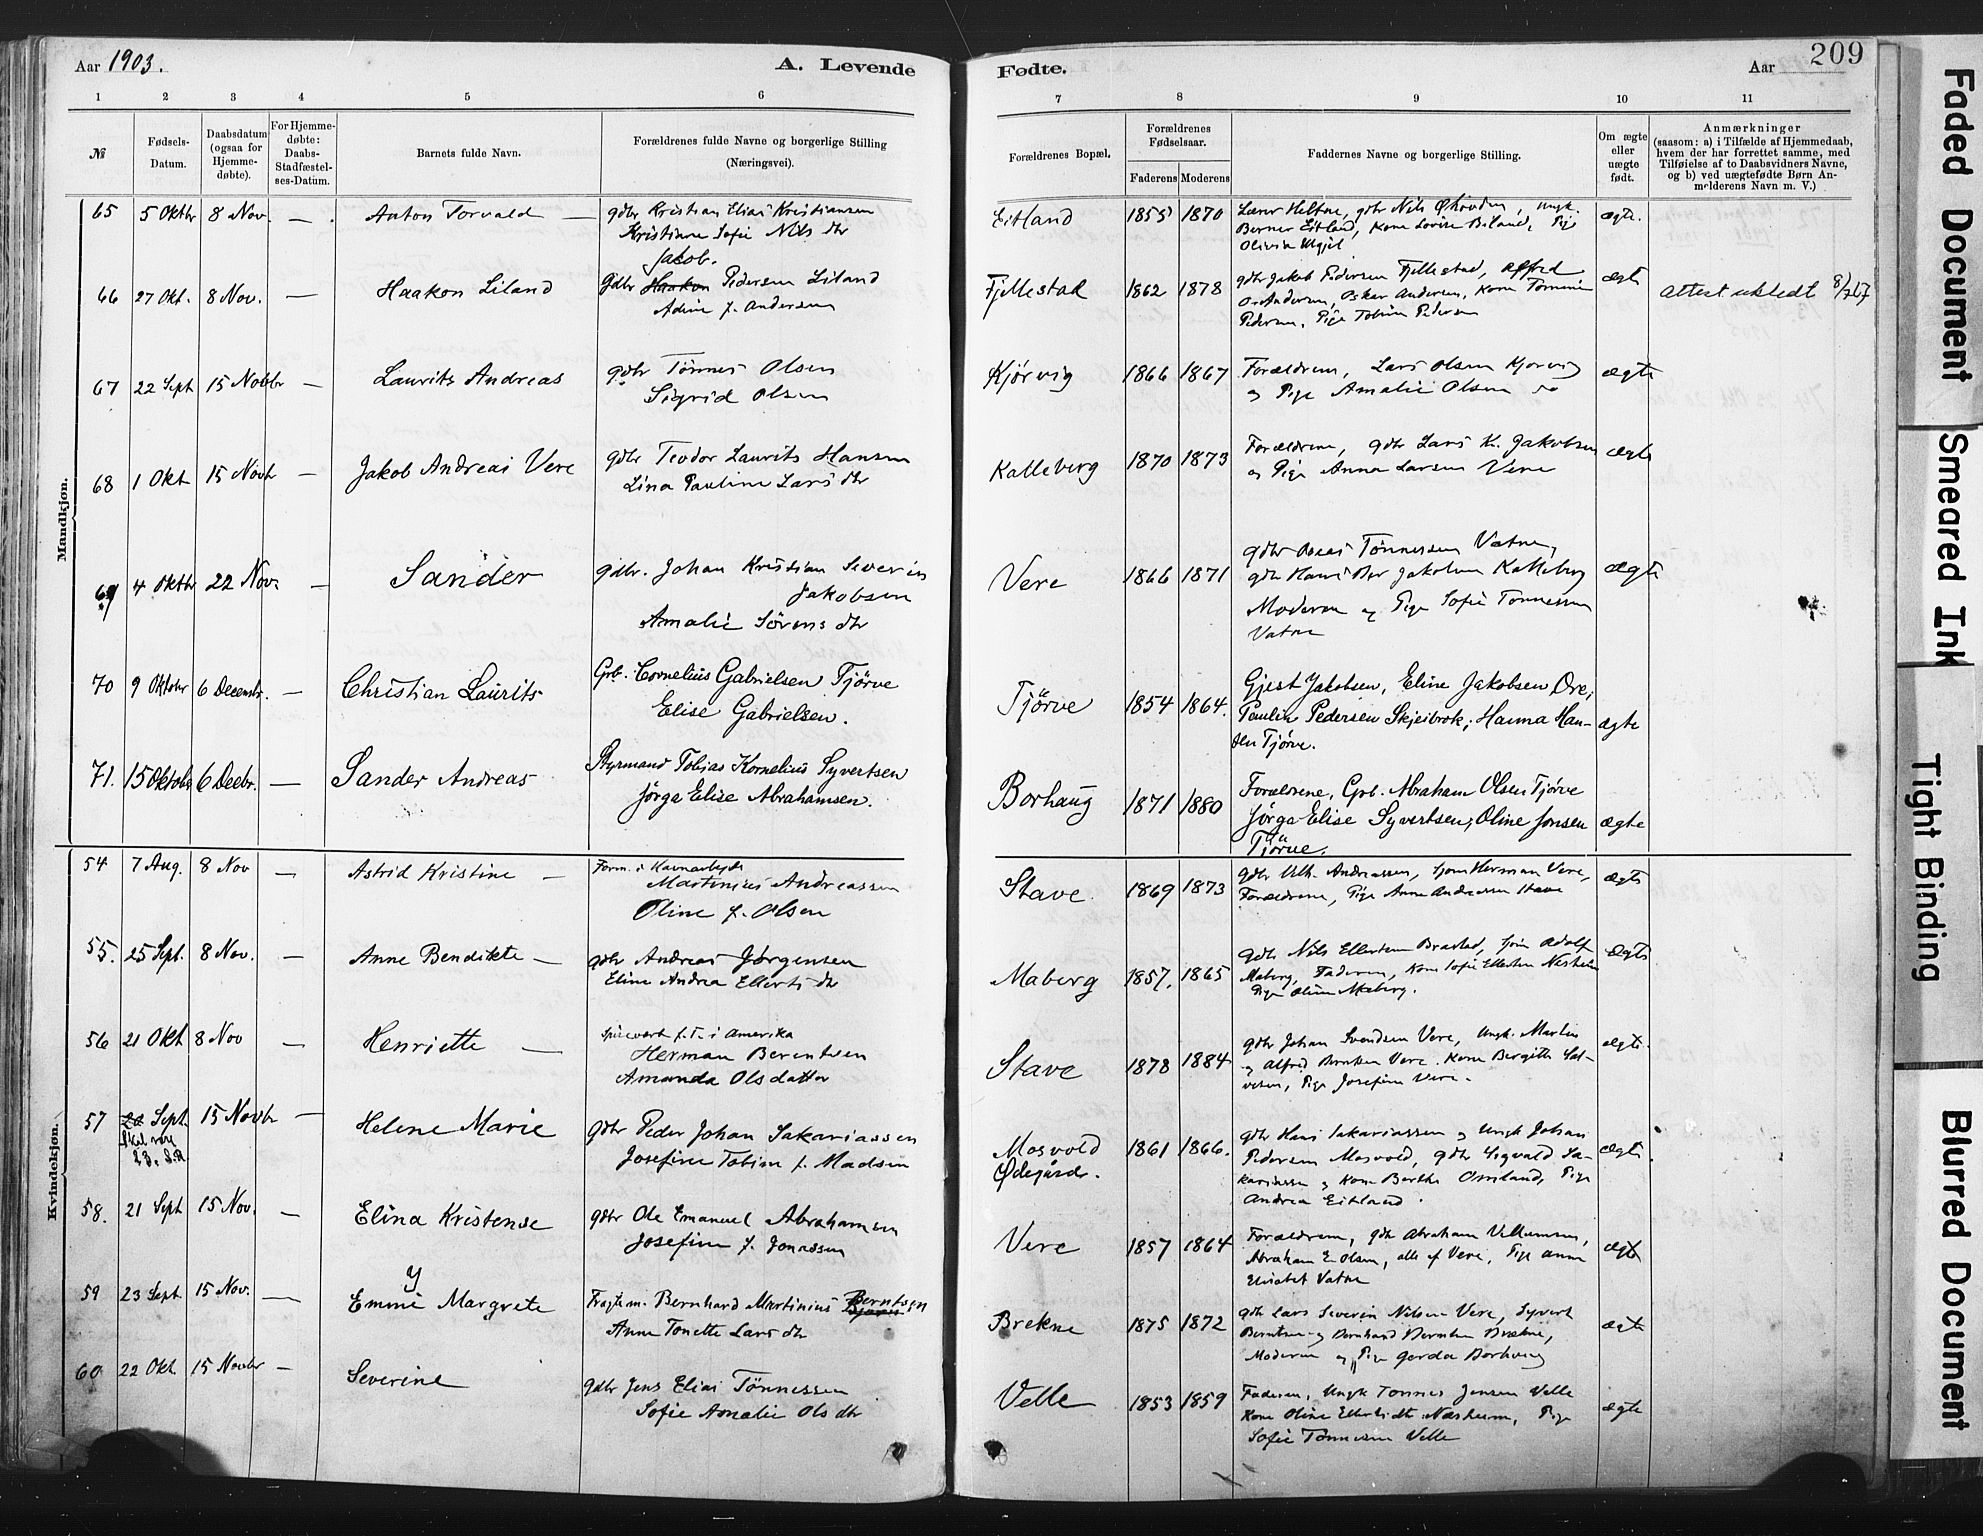 Aar 1903.
A. Levende
Fødte.
Aar
209
1 2 3 4 5 6 7 8 9 10 11
№
Fødsels-
Datum.
Daabsdatum
(ogsaa for
Hjemme-
døbte).
For Hjemme-
døbte:
Daabs-
Stadfæstel-
ses-Datum.
Barnets fulde Navn.
Forældrenes fulde Navne og borgerlige Stilling
(Næringsvei).
Forældrenes Bopæl.
Forældrenes
Fødselsaar.
Faderens Moderens
Faddernes Navne og borgerlige Stilling.
Om ægte
eller
uægte
født.
Anmærkninger
(saasom: a) i Tilfælde af Hjemmedaab,
hvem der har forrettet samme, med
Tilføielse af to Daabsvidners Navne,
og b) ved uægtefødte Børn An-
melderens Navn m. V.)
Mandkjøn.
65 5 Oktbr 8 Nov. — Anton Torvald — gdbr Kristian Elias Kristiansen
Kristiane Sofie Nils dtr
Eitland 1855 1870 gdbr Nils
Berner Eitland, Kone Lovise Pige
Olivia
ægte.
66 27 Okt. 8 Nov. — Haakon Liland
Jakob.
gdbr Haakon Pedersen Liland
Adine f. Andersen
Fjellestad 1862 1878 gdbr Jakob Pedersen Fjellestad, Alfred
Andersen, Oskar Andersen, Kone
Pedersen, Pige Pedersen
ægte Attest utstedt
67 22 Sept 15 Novbr — Laurits Andreas gdbr Tønnes Olsen
Sigrid Olsen
Kjørvig 1866 1867 Forældrene, Lars Olsen Kjørvig
og Pige Amalie Olsen
ægte
68 1 Okt 15 Novbr — Jakob Andreas Vere gdbr Teodor Laurits Hansen
Lina Pauline Lars dtr
Kalleberg 1870 1873 Forældrene, gdbr Lars K. Jakobsen
og Pige Anna Larsen Vere
ægte
69 4 Oktbr 22 Nov. — Sander gdbr. Johan Kristian Severin
Jakobsen
Amalie Sørens dtr
Vere 1866 1871 gdbr Tønnessen Vatne,
gdbr Jakobsen Kalleberg
Moderen og Pige Sofie Tønnessen
Vatne
ægte
70 9 Oktobr 6 Decembr. — Christian Laurits Grb. Cornelius Gabrielsen Tjörve
Elise Gabrielsen.
Tjörve 1854 1864. Gjest Jakobsen, Eline Jakobsen Ore;
Paulin Pedersen Skjeibrok; Hanna Han-
sen Tjörve.
ægte
71. 15 Oktobr 6 Decbr. — Sander Andreas Styrmand Tobias Kornelius Syvertsen
Jørga Elise Abrahamsen.
Borhaug 1871 1880 Forældrene, Grb. Abraham Olsen Tjörve
Jørga Elise Syvertsen; Oline Jonsen
Tjörve.
ægte
Kvindekjøn.
54 7 Aug. 8 Nov — Astrid Kristine — Form. i Havnarbeide
Martinius Andreassen
Oline f. Olsen
Stave 1869 1873 gdbr Andreassen, Herman Vere,
Forældrene, Pige Anne Andreassen Stave
ægte
55. 25 Sept. 8 Nov. — Anne Bendikte — gdbr Andreas Jørgensen
Eline Andrea Ellerts dtr
Maberg 1857. 1865 gdbr Nils Ellertsen Brastad, Adolf
Maberg, Faderen, Kone Sofie Ellertsen Næsheim
Pige Maberg.
ægte
56 21 Okt 8 Nov — Henriette — f. T. i Amerika
Herman Berentsen
Amanda Olsdatter
Stave 1878 1884 gdbr Johan Svendsen Vere, Ungk. Martin
og Alfred Berntsen Vere. Kone Bergitte Sal-
vesen, Pige Josefine Vere.
ægte.
57 22 Sept. 15 Novbr —
Skal være
23. S.R
Helene Marie gdbr Peder Johan Sakariassen
Josefine Tobine f. Madsen
Mosvold
Ødegård.
1861 1866. gdbr Hans Sakariassen og Ungk Johan
Pedersen Mosvold, gdbr Sigvald Sa-
kariassen og Kone Berthe Omland, Pige
Andrea Eitland.
ægte.
58. 21 Sept 15 Nov. — Elina Kristense gdbr Ole Emanuel Abrahamsen
Josefine f. Jonassen
Vere 1857 1864 Forældrene, gdbr Abraham Villumsen,
Abraham E. Olsen, alle af Vere, Pige Anne
Elisabet Vatne
ægte
59 23 Sept 15 Nov. —
y
Emmi Margrete Fragtem. Bernhard Martinius Berntsen
Anne Tonette Lars dtr
Brekne 1875 1872 gdbr Lars Severin Nilsen Vere, Syvert
Berntsen og Bernhard Berntsen Brekne,
Moderen og Pige Gerda Borhaug
ægte
60 22 Okt 15 Novbr — Severine gdbr Jens Elias Tønnessen
Sofie Amalie Ols dtr
Velle 1853 1859 Faderen, Ungk Tønnes Jensen Velle
Kone Oline Næsheim, Pige
Sofie Tønnessen Velle
ægte
Faded Document
Smeared Ink
Tight Binding
Blurred Document